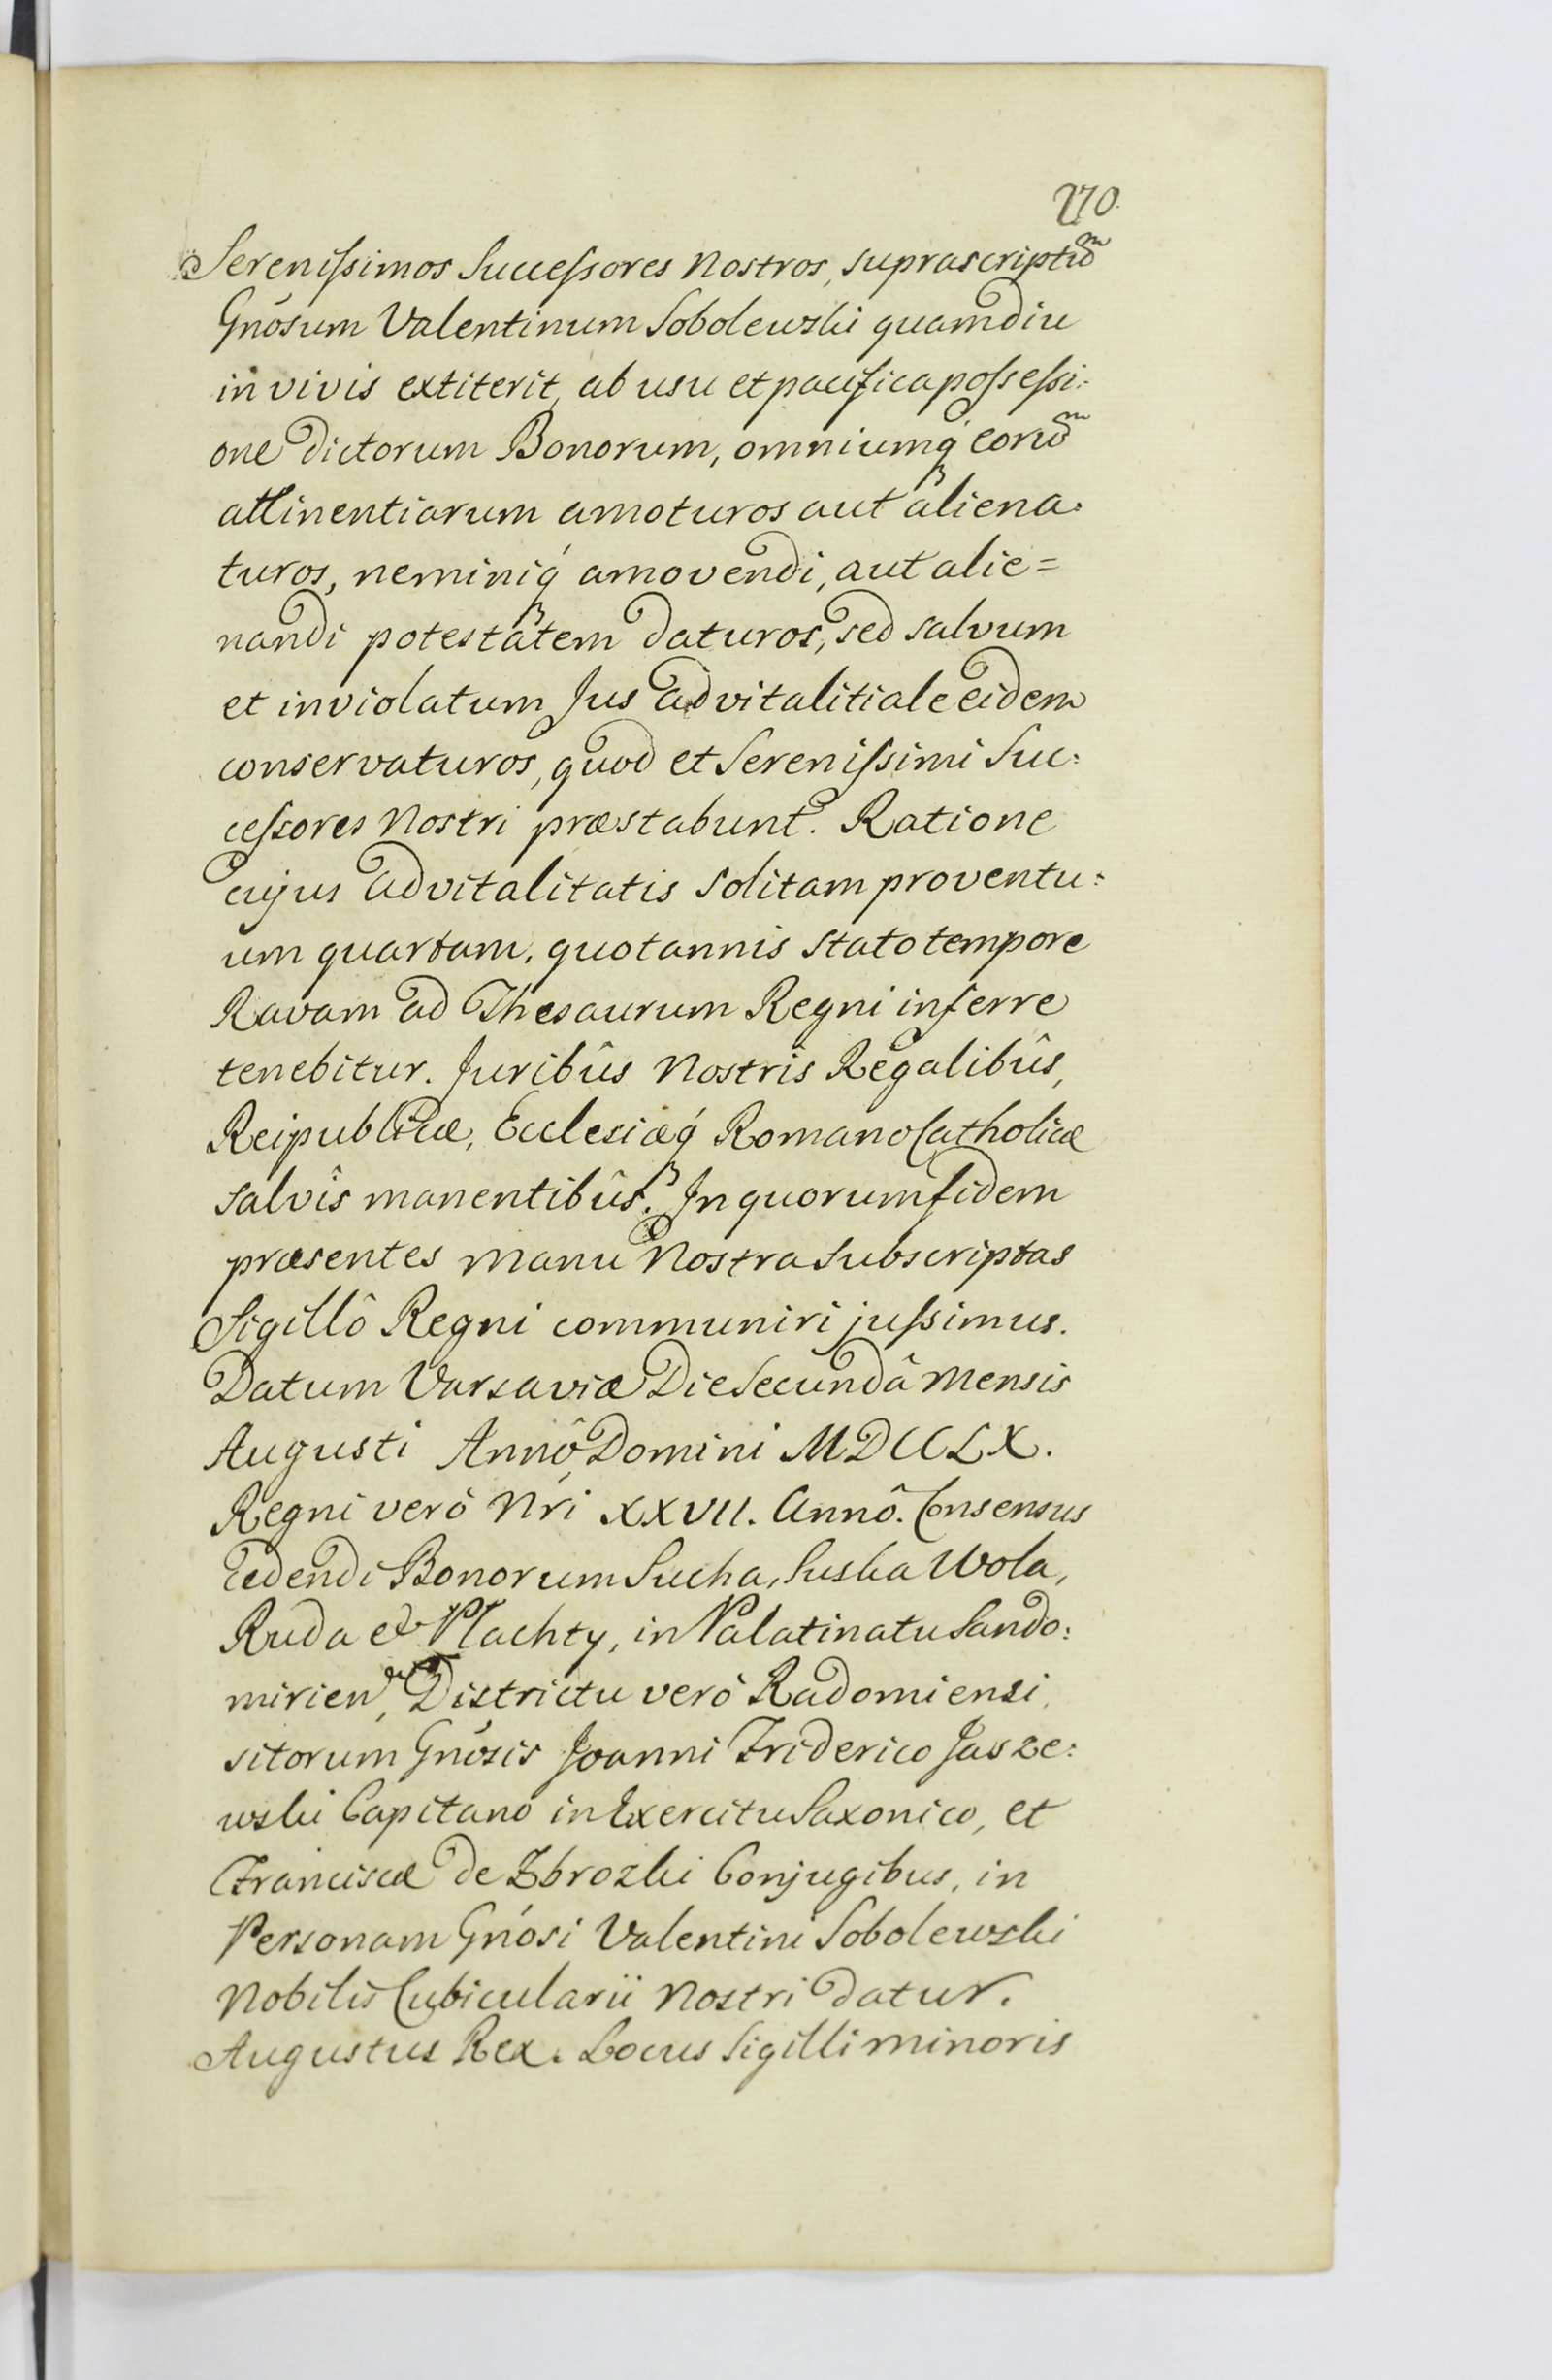 270.
Serenissimos Successores Nostros, suprascriptũm
Gnósum Valentinum Sobolewski quamdiu
in vivis extiterit, ab usu et pacifica possessi:
one dictorum Bonorum, omniumq́ eorũm
attinentiarum amoturos aut aliena:
turos, neminiq́ amovendi, aut alie=
nandi potestatem daturos, sed salvum
et inviolatum Jus advitalitiale eidem
conservaturos, quod et Serenissimi Suc:
cessores Nostri præstabunt. Ratione
cujus advitalitatis solitam proventu:
um quartam, quotannis stato tempore
Ravam ad Thesaurum Regni inferre
tenebitur. Juribûs Nostris Regalibûs,
Reipublicæ, Ecclesiæq́ Romano Catholicæ
salvîs manentibûs. In quorum fidem
præsentes manu Nostra subscriptas
Sigillô Regni communiri jussimus.
Datum Varsaviæ Die Secundâ Mensis
Augusti Annô Domini MDCCLX.
Regni verò Nrí XXVII. Annô. Consensus
Cedendi Bonorum Sucha, Suska Wola,
Ruda et Płachty, in Palatinatu Sando:
mirien, Districtu verò Radomiensi,
sitorum Gnósis Joanni Friderico Jasze:
wski Capitano in Exercitu Saxonico, et
Franciscæ de Zbrozki Conjugibus, in
Personam Gnósi Valentini Sobolewski
Nobilis Cubicularii Nostri datur.
Augustus Rex. Locus Sigilli minoris